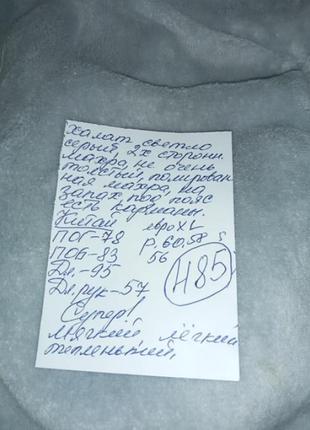 халат светло
серый, 2х сторонн.
махра, не очень
толстый, полирован
ная махра, на
запах под пояс
есть карманы.
Китай евроXL
ПОГ-78 р. 60,58
ПОБ-83 56
Дл.-95 485
Дл.рук-57
Супер!
Мягкий лёгкий
тепленький.